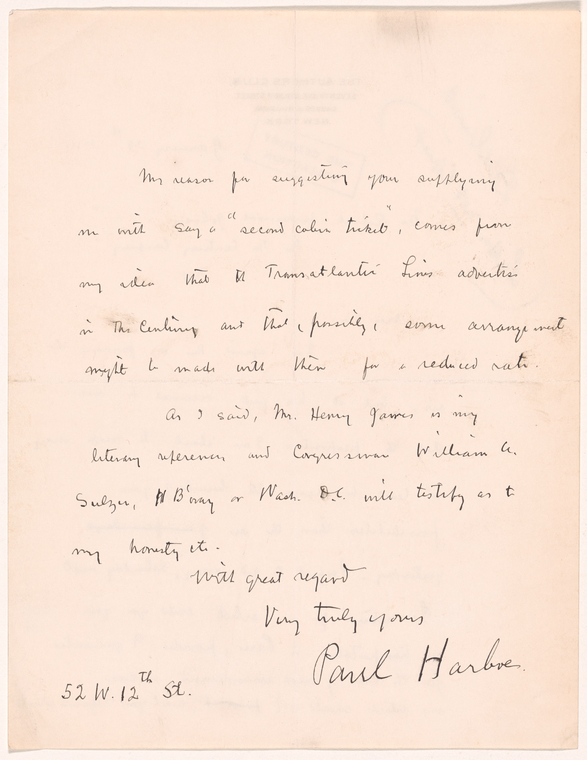 My reason for suggesting your supplying
me with say a "second cabin ticket", comes from
my idea that the Transatlantic Lines advertise
in The Century and that, possibly, some arrangement
might be made with them for a reduced rate.
As I said, Mr. Henry James is my
literary reference and Congressman William
Sulzer, B'way or Wash. D.C. will testify as to
my honesty etc.
With great regard
Very truly yours
Paul Harboe.
52 W. 12th St.